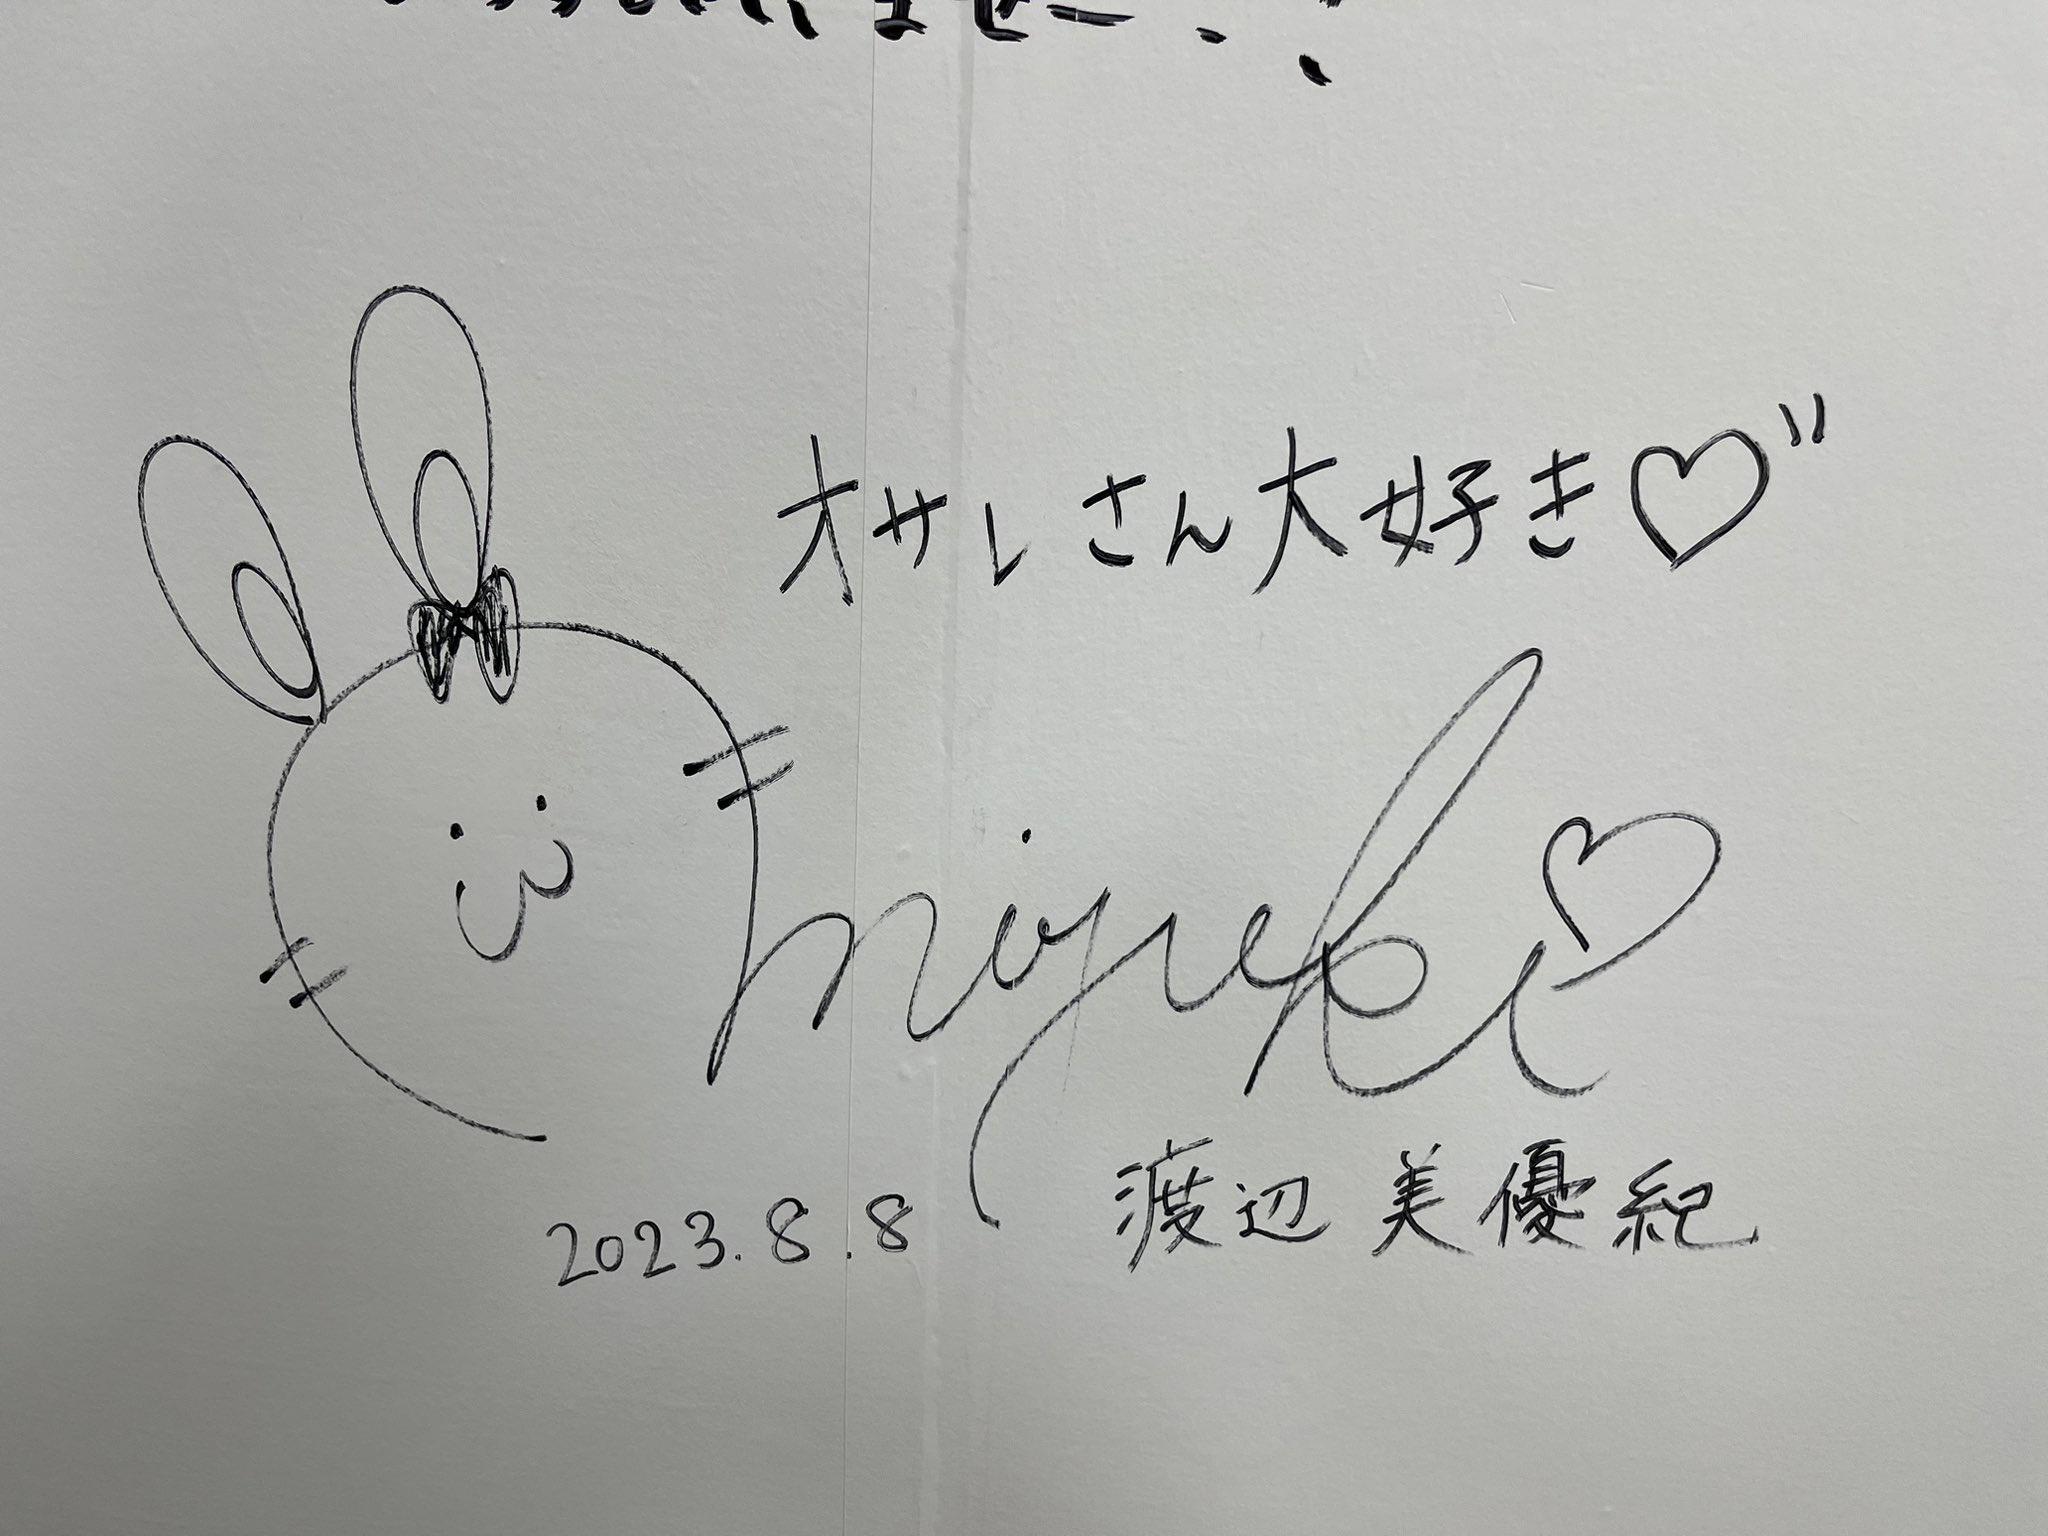 ませー！
オサレさん大好き♡"
miyuki♡
渡辺美優紀
2023.8.8